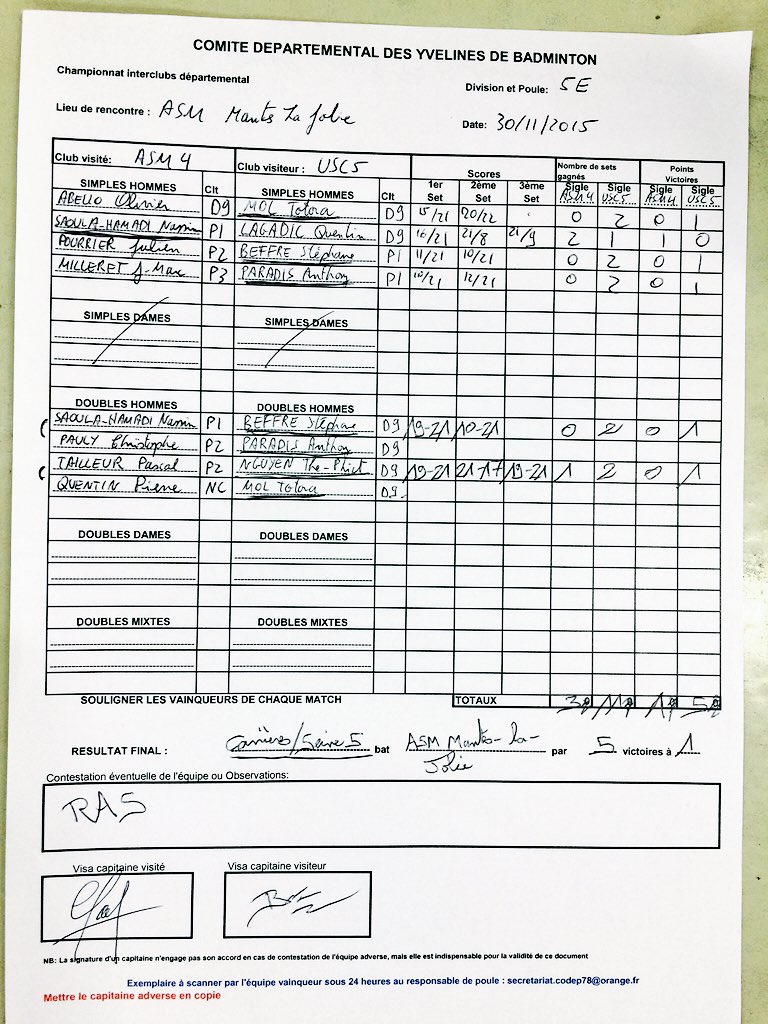 COMITE DEPARTEMENTAL DES YVELINES DE BADMINTON
Championnat interclubs départemental
Division et Poule: 5E
Lieu de rencontre : ASM Mantes La Jolie
Date: 30/11/2015
Club visité: ASM 4 Club visiteur : USC5 Scores Nombre de sets gagnés Points Victoires
SIMPLES HOMMES Clt SIMPLES HOMMES Clt 1er Set 2ème Set 3ème Set Sigle ASM4 Sigle USC5 Sigle ASM4 Sigle USC5
ABELLO Olivier D9 MOL Totora D9 15/21 20/22 0 2 0 1
SAOULA-HAMADI Nassim P1 LAGADIC Quentin D9 16/21 21/8 21/9 2 1 1 0
POURRIER Julien P2 BEFFRE Stéphane P1 11/21 10/21 0 2 0 1
MILLERET J-Marc P3 PARADIS Anthony P1 10/21 12/21 0 2 0 1
SIMPLES DAMES SIMPLES DAMES
DOUBLES HOMMES DOUBLES HOMMES
SAOULA-HAMADI Nassim P1 BEFFRE Stéphane D9 19-21 10-21 0 2 0 1
PAULY Christophe P2 PARADIS Anthony D9
TAILLEUR Pascal P2 NGUYEN The-Phiet D9 19-21 21-17 19-21 1 2 0 1
QUENTIN Pierre NC MOL Totora D9
DOUBLES DAMES DOUBLES DAMES
DOUBLES MIXTES DOUBLES MIXTES
SOULIGNER LES VAINQUEURS DE CHAQUE MATCH TOTAUX 3 11 1 5
RESULTAT FINAL : Carrières/Seine 5 bat ASM Mantes-la-Jolie par 5 victoires à 1
Contestation éventuelle de l'équipe ou Observations:
RAS
Visa capitaine visité Visa capitaine visiteur
NB: La signature d'un capitaine n'engage pas son accord en cas de contestation de l'équipe adverse, mais elle est indispensable pour la validité de ce document
Exemplaire à scanner par l'équipe vainqueur sous 24 heures au responsable de poule : secretariat.codep78@orange.fr
Mettre le capitaine adverse en copie